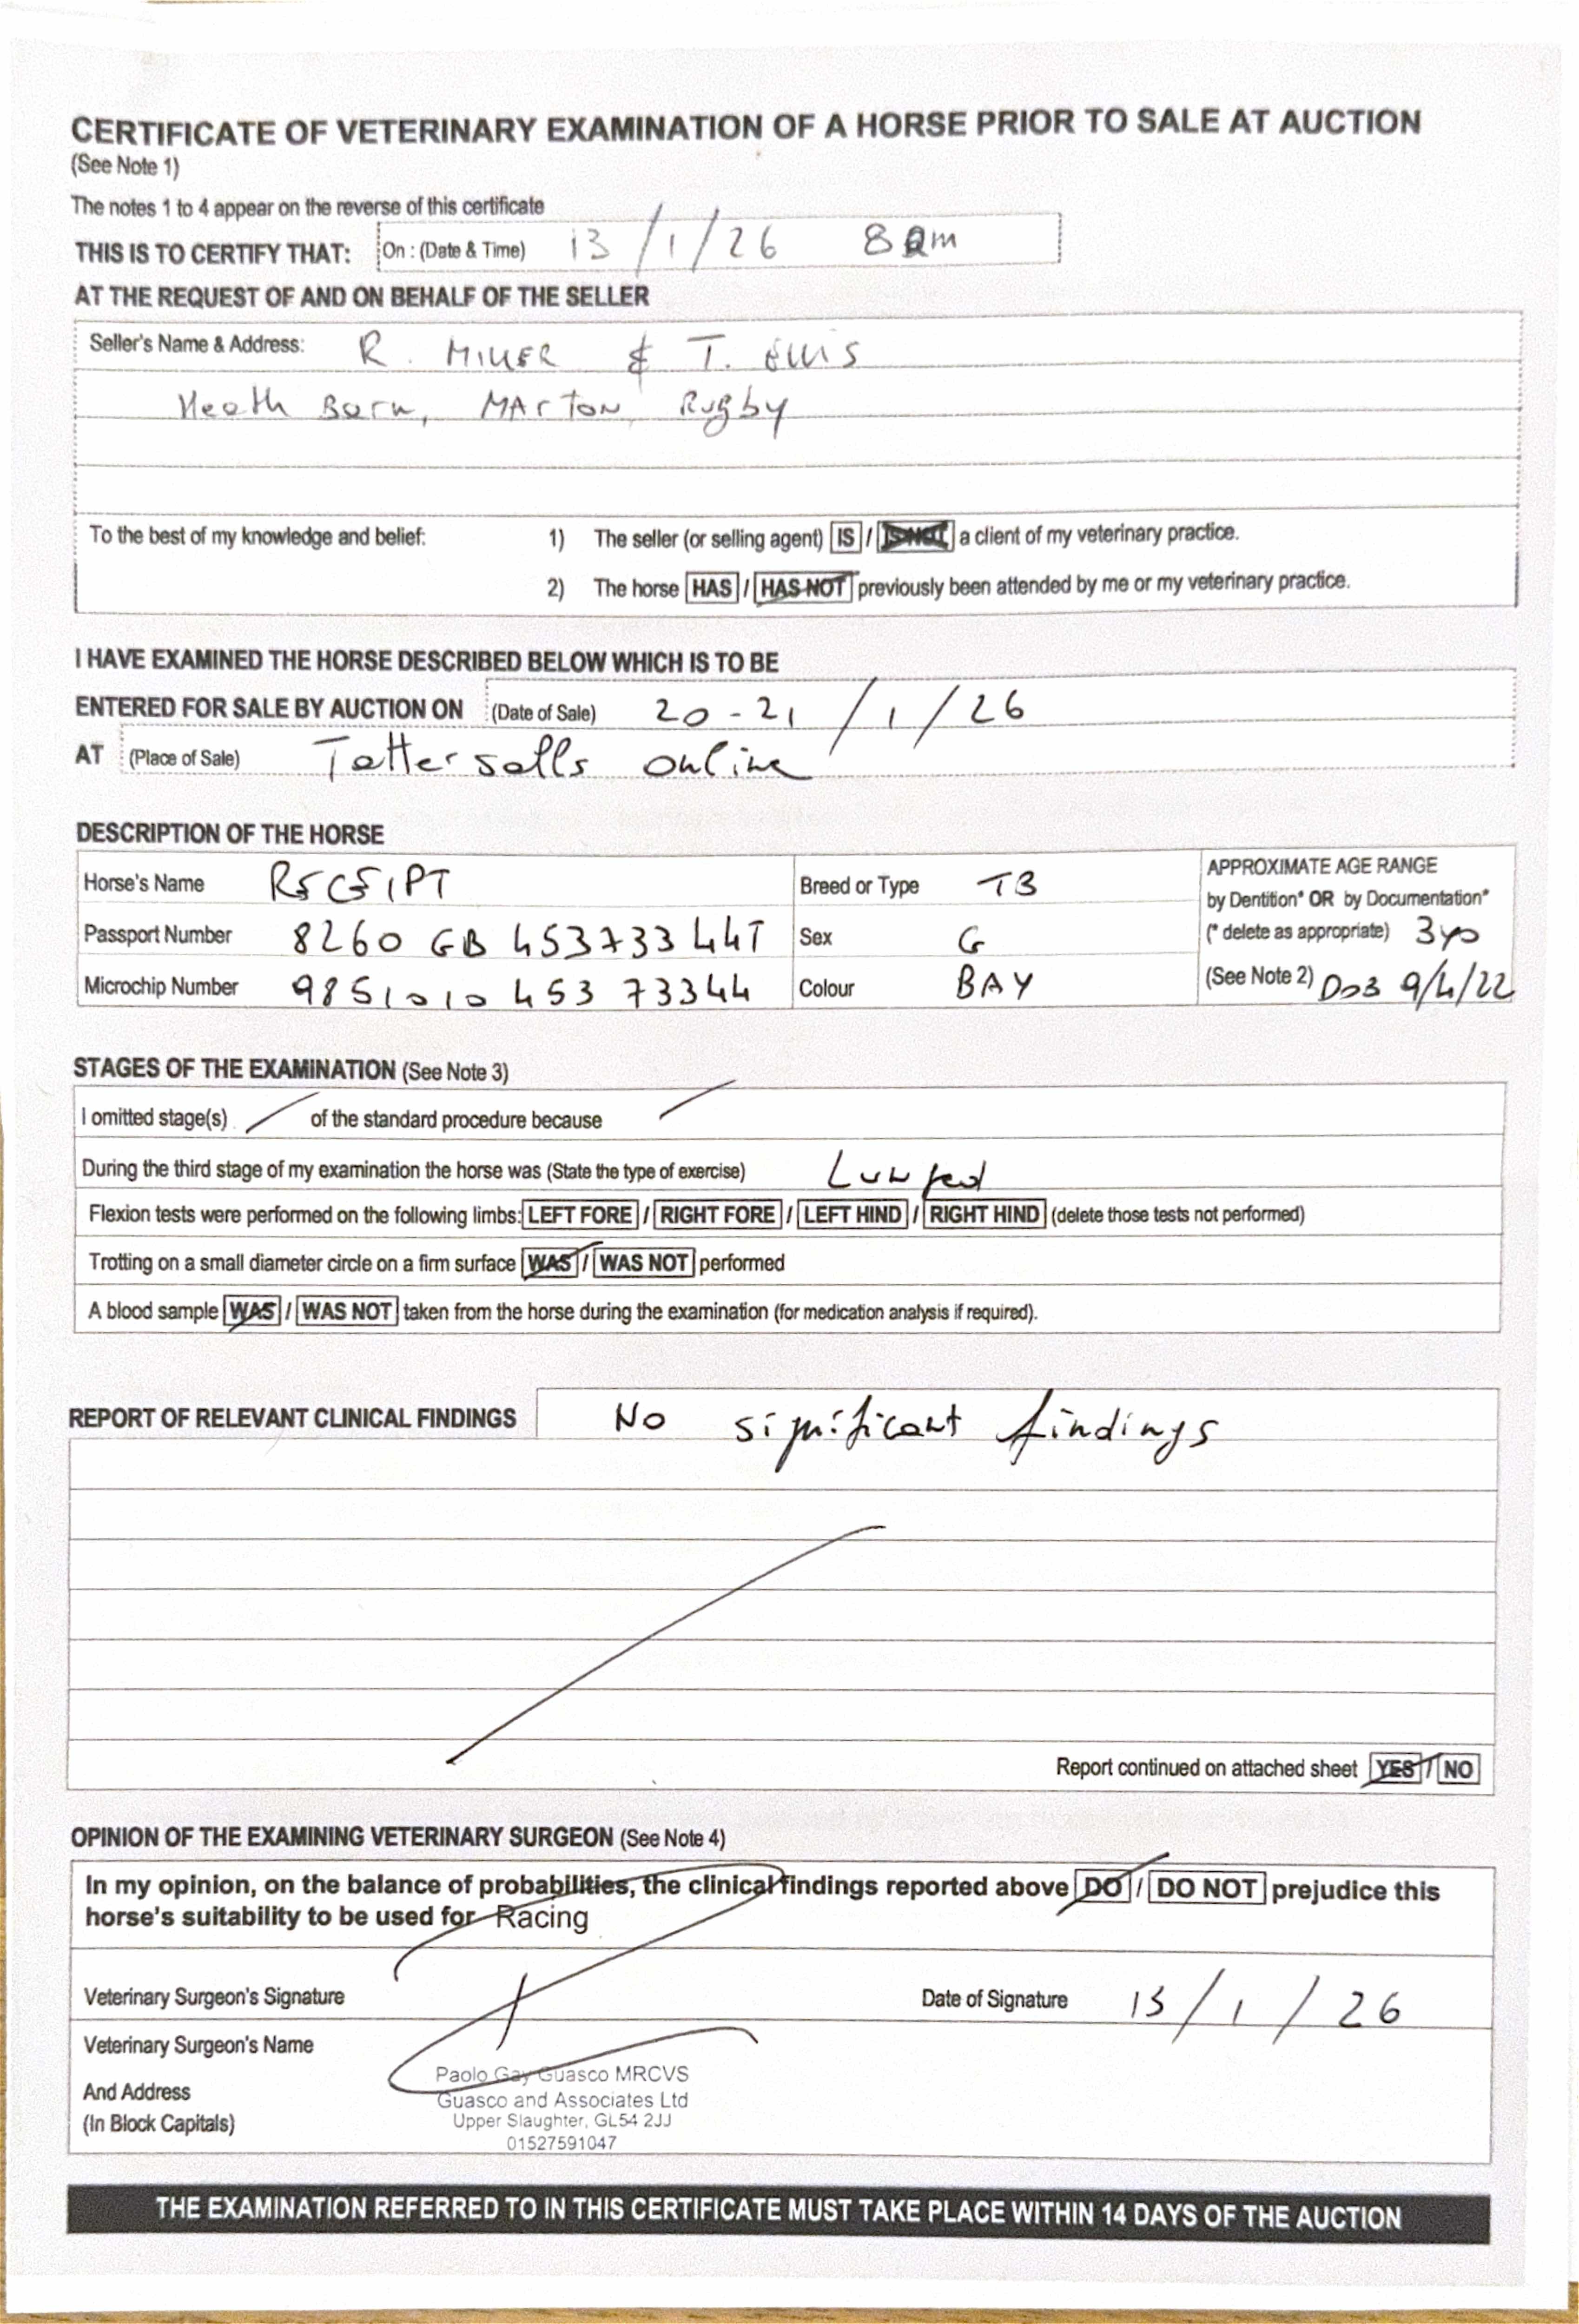 CERTIFICATE OF VETERINARY EXAMINATION OF A HORSE PRIOR TO SALE AT AUCTION
(See Note 1)
The notes 1 to 4 appear on the reverse of this certificate
THIS IS TO CERTIFY THAT: On : (Date & Time) 13/1/26 8am
AT THE REQUEST OF AND ON BEHALF OF THE SELLER
Seller's Name & Address: R. MILLER & T. Ellis
Heath Barn, MArTON, Rugby
To the best of my knowledge and belief: 1) The seller (or selling agent) IS / IS NOT a client of my veterinary practice.
2) The horse HAS / HAS NOT previously been attended by me or my veterinary practice.
I HAVE EXAMINED THE HORSE DESCRIBED BELOW WHICH IS TO BE
ENTERED FOR SALE BY AUCTION ON (Date of Sale) 20-21/1/26
AT (Place of Sale) Tattersalls online
DESCRIPTION OF THE HORSE
Horse's Name RECEIPT Breed or Type TB APPROXIMATE AGE RANGE
by Dentition* OR by Documentation*
Passport Number 8260 GB 45373344T Sex G (* delete as appropriate) 3yo
Microchip Number 9851010 453 73344 Colour BAY (See Note 2) DOB 9/4/22
STAGES OF THE EXAMINATION (See Note 3)
I omitted stage(s) / of the standard procedure because /
During the third stage of my examination the horse was (State the type of exercise) Lunged
Flexion tests were performed on the following limbs: LEFT FORE / RIGHT FORE / LEFT HIND / RIGHT HIND (delete those tests not performed)
Trotting on a small diameter circle on a firm surface WAS / WAS NOT performed
A blood sample WAS / WAS NOT taken from the horse during the examination (for medication analysis if required).
REPORT OF RELEVANT CLINICAL FINDINGS No significant findings
Report continued on attached sheet YES / NO
OPINION OF THE EXAMINING VETERINARY SURGEON (See Note 4)
In my opinion, on the balance of probabilities, the clinical findings reported above DO / DO NOT prejudice this
horse's suitability to be used for Racing
Veterinary Surgeon's Signature Date of Signature 13/1/26
Veterinary Surgeon's Name
And Address
(In Block Capitals)
Paolo Gay Guasco MRCVS
Guasco and Associates Ltd
Upper Slaughter, GL54 2JJ
01527591047
THE EXAMINATION REFERRED TO IN THIS CERTIFICATE MUST TAKE PLACE WITHIN 14 DAYS OF THE AUCTION